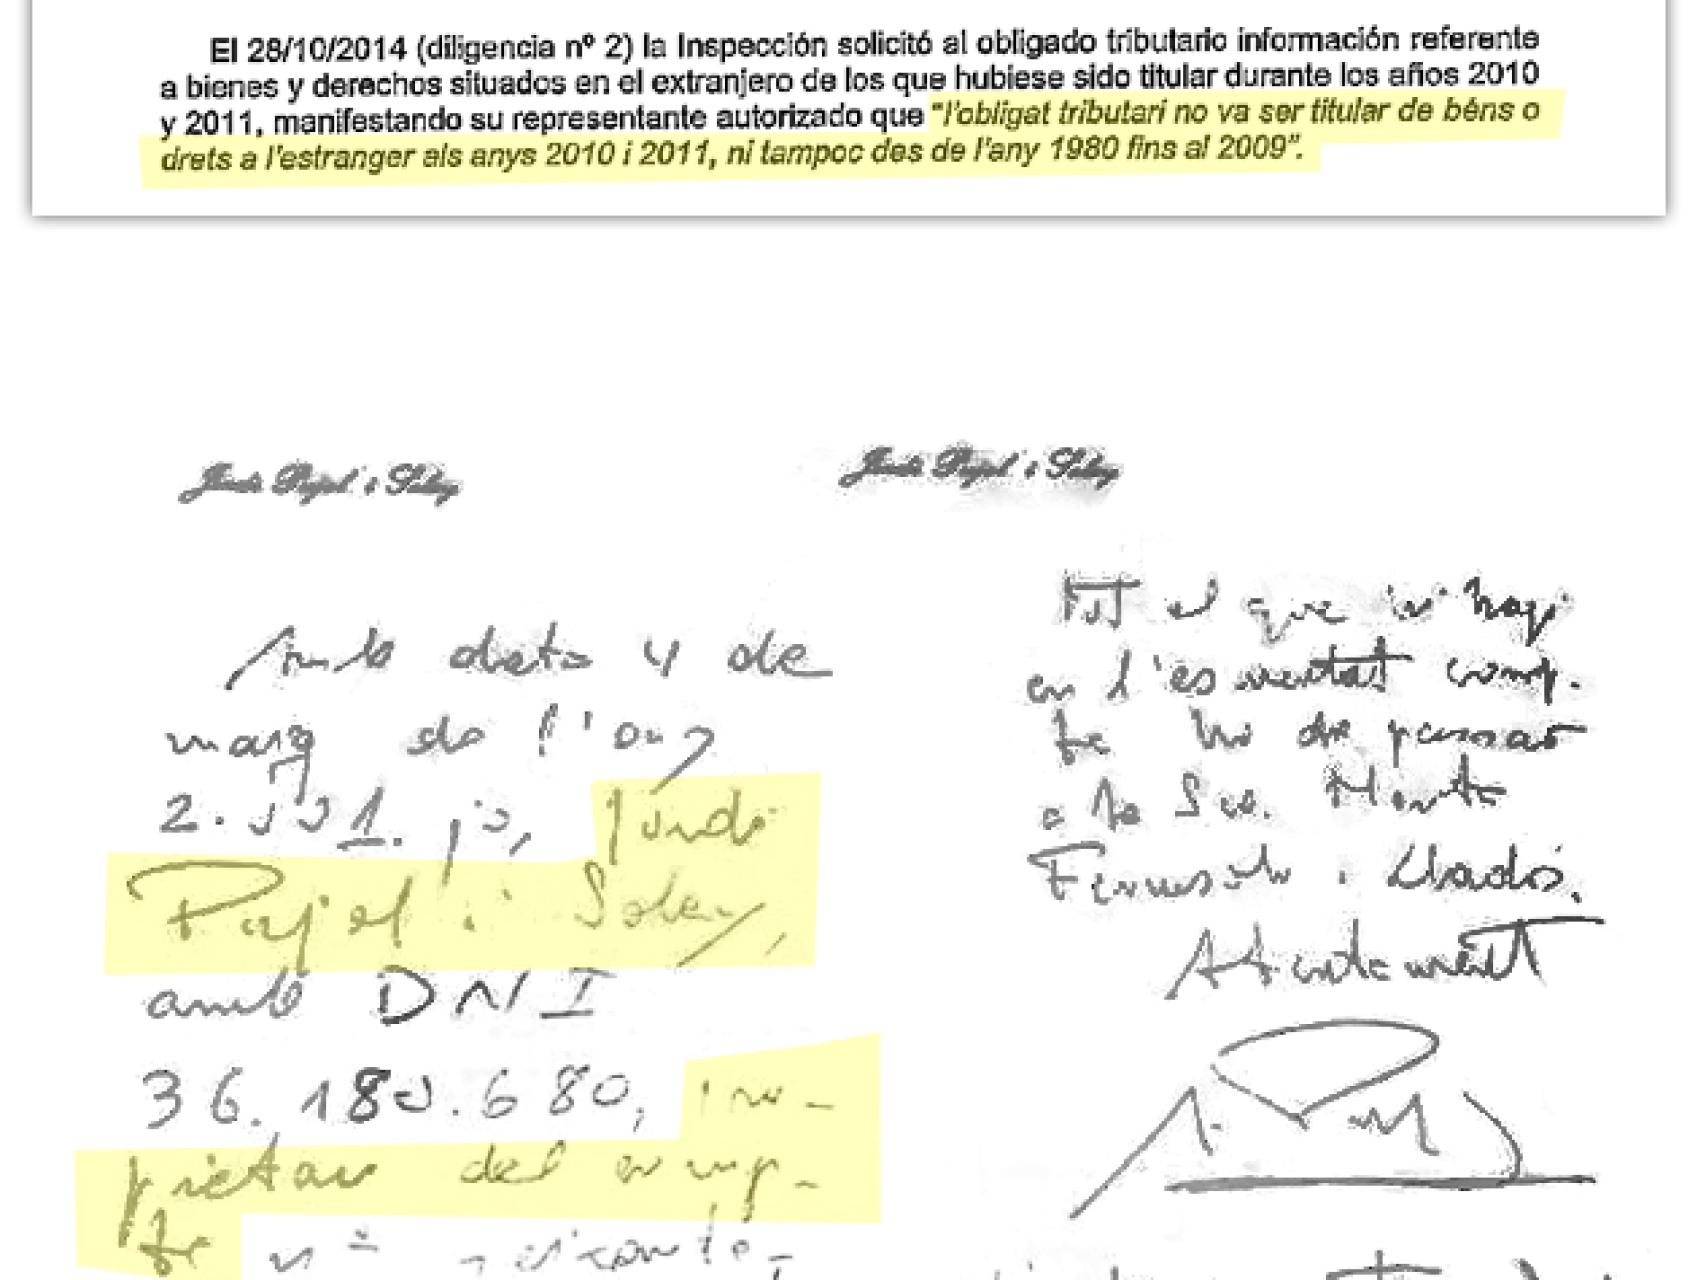 El 28/10/2014 (diligencia nº 2) la Inspección solicitó al obligado tributario información referente
a bienes y derechos situados en el extranjero de los que hubiese sido titular durante los años 2010
y 2011, manifestando su representante autorizado que "l'obligat tributari no va ser titular de béns o
drets a l'estranger als anys 2010 i 2011, ni tampoc des de l'any 1980 fins al 2009".
Jordi Pujol i Soley
Amb data 4 de
març de l'any
2.001. jo, Jordi
Pujol i Soley,
amb DNI
36.180.680, pro-
pietari del comp-
te nº
Jordi Pujol i Soley
Tot el que hi hagi
en l'esmentat comp-
te ho de passar
a la Sra. Marta
Ferrusola i Lladós.
Atentament